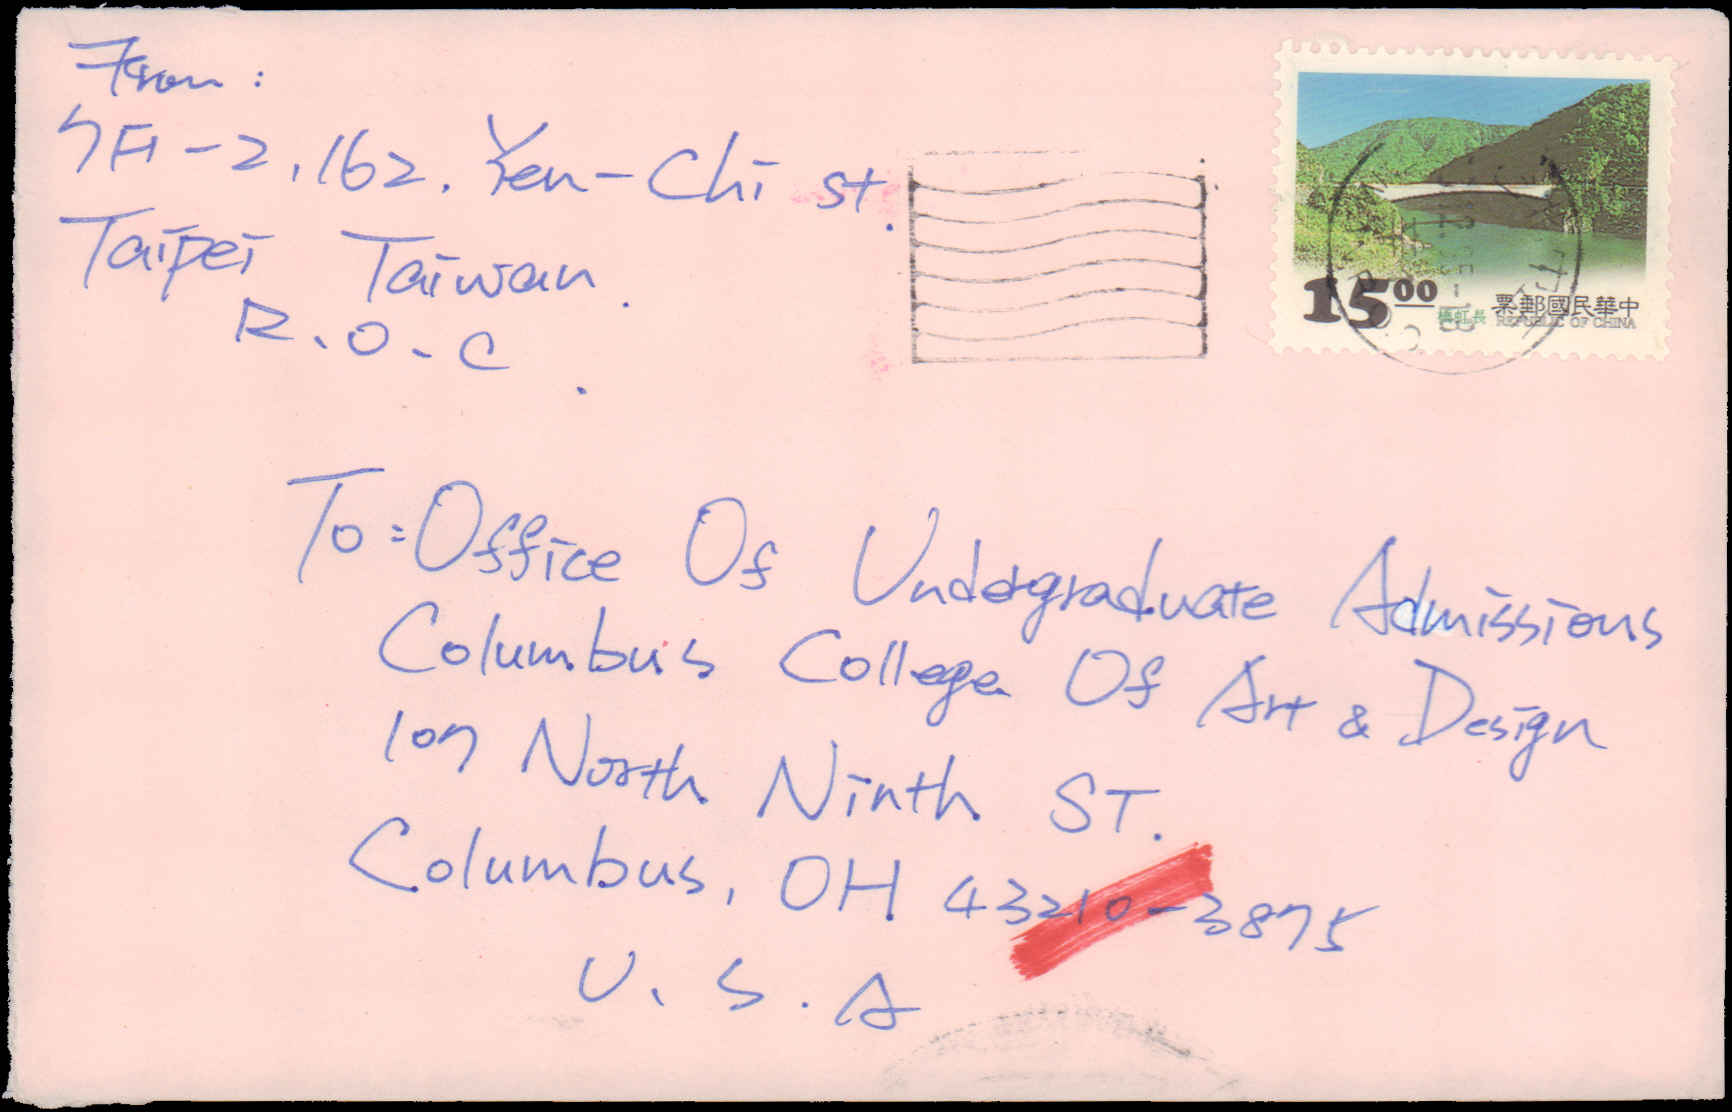 From:
7F1-2, 162. Yen-Chi St.
Taipei Taiwan.
R.O.C.
15.00
長虹橋
中華民國郵票
REPUBLIC OF CHINA
To: Office Of Undergraduate Admissions
Columbus College Of Art & Design
107 North Ninth ST.
Columbus, OH 43210-3875
U.S.A